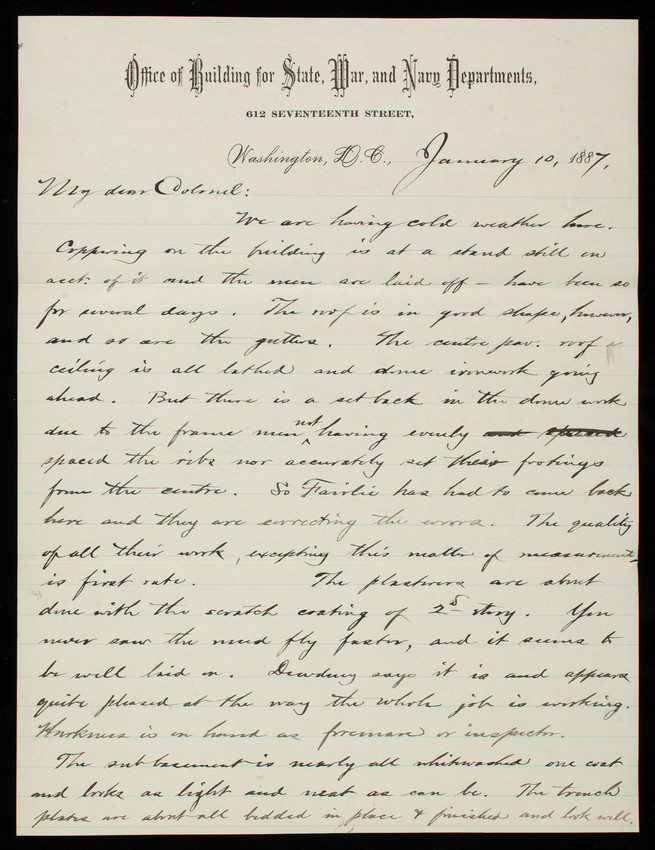 Office of Building for State, War, and Navy Departments,
612 SEVENTEENTH STREET,
Washington, D.C., January 10, 1887.
My dear Colonel:
We are having cold weather here.
Coppering on the building is at a stand still on
acct: of it and the men are laid off – have been so
for several days. The roof is in good shape, however,
and so are the gutters. The centre pav. roof &
ceiling is all lathed and dome ironwork going
ahead. But there is a set back in the dome work
due to the frame men not having evenly and spaced
spaced the ribs nor accurately set their footings
from the centre. So Fairlie has had to come back
here and they are correcting the errors. The quality
of all their work, excepting this matter of measurement,
is first rate. The plasterers are about
done with the scratch coating of 2d story. You
never saw the mud fly faster, and it seems to
be well laid on. Dewdney says it is and appears
quite pleased at the way the whole job is working.
Harkness is on hand as foreman or inspector.
The subbasement is nearly all whitewashed one coat
and looks as light and neat as can be. The trench
plates are about all bedded in place & finished and look well.